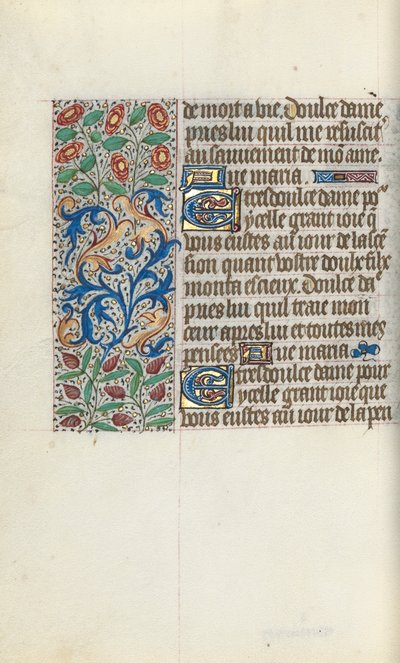 de mort a vie. Doulce dame
pries lui quil me resuscit
au sauuement de mõ ame.
Aue maria
E tresdoulce dame po
ycelle grant ioie q̃
vous eustes au iour de lascẽ
sion quant vostre doulx filz
monta es cieux. Doulce da
pries lui quil traie mon
cuer apres lui et toutes mes
pensees Aue maria
E tresdoulce dame pour
ycelle grant ioie que
vous eustes au iour de la pen